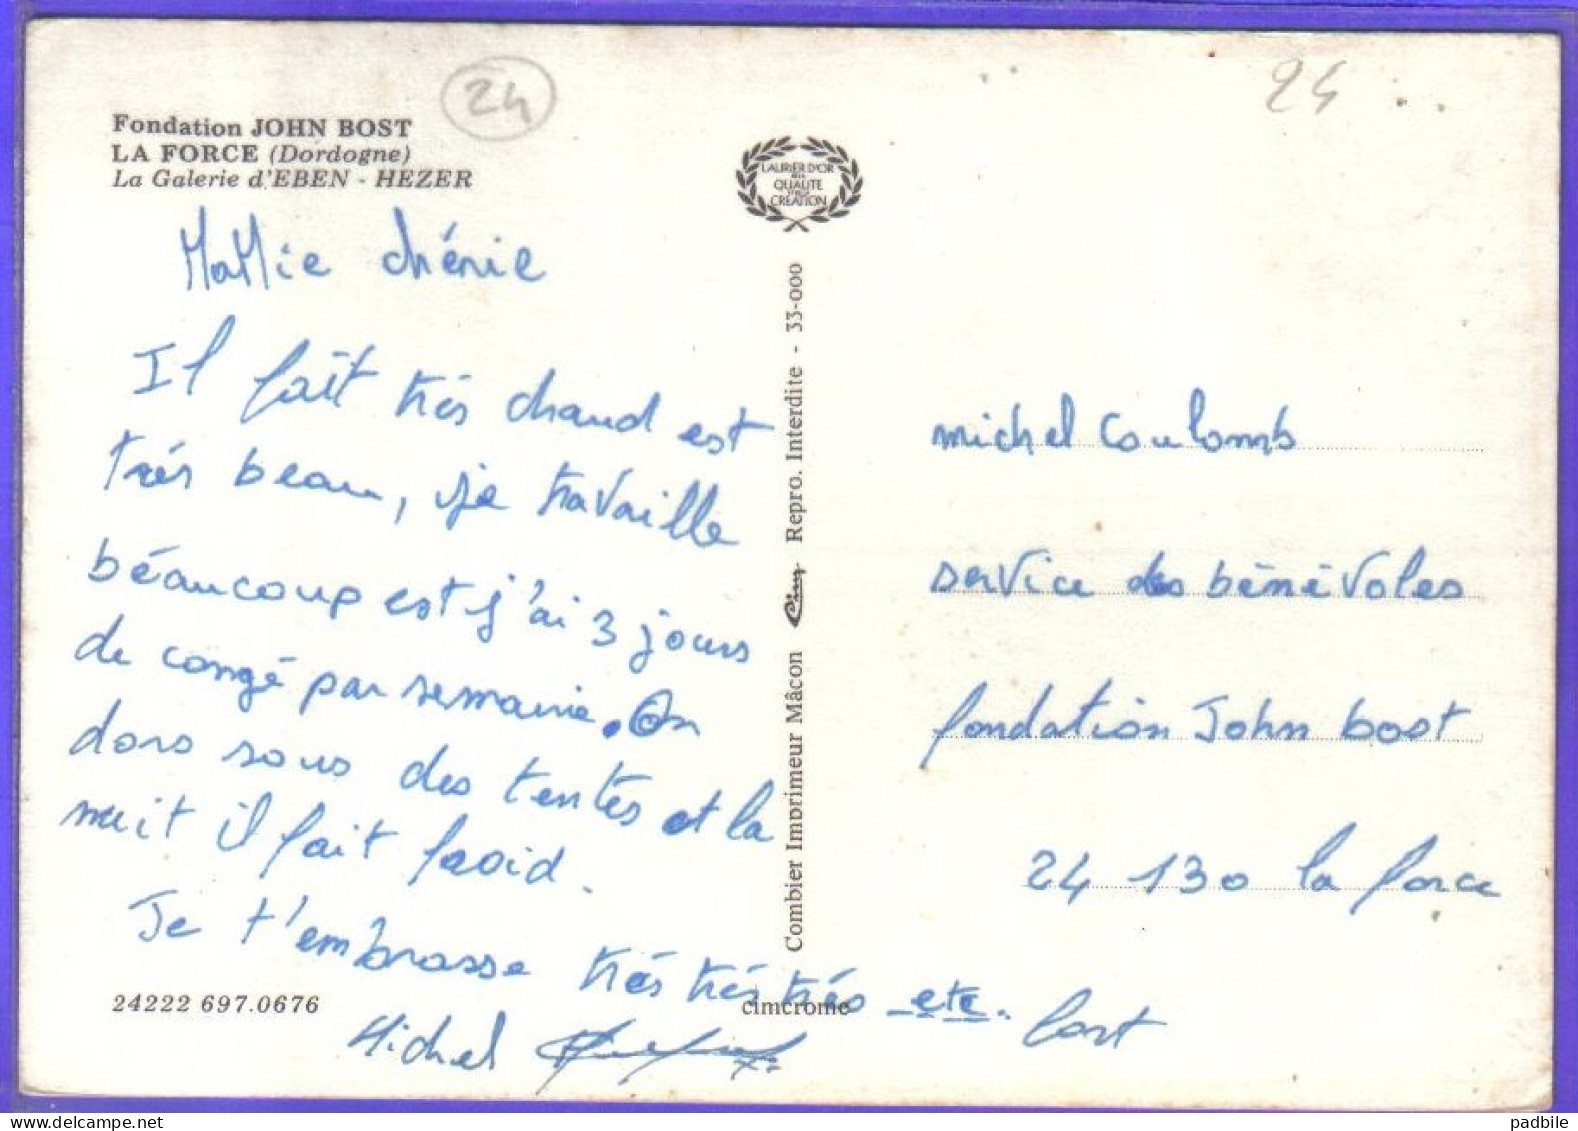 24
24
Fondation JOHN BOST
LA FORCE (Dordogne)
La Galerie d'EBEN - HEZER
LAURIER D'OR
DE LA
QUALITE
CREATION
MaMie chérie
Il fait trés chaud est
trés beau, je travaille
béaucoup est j'ai 3 jours
de congé par semaine. On
dors sous des tentes et la
nuit il fait froid.
Je t'embrasse trés trés trés etc. fort
Michel
24222 697.0676
cimcrome
Combier Imprimeur Mâcon Cim Repro. Interdite - 33-000
michel Coulomb
service des bénévoles
fondation John bost
24 130 la force
padbile